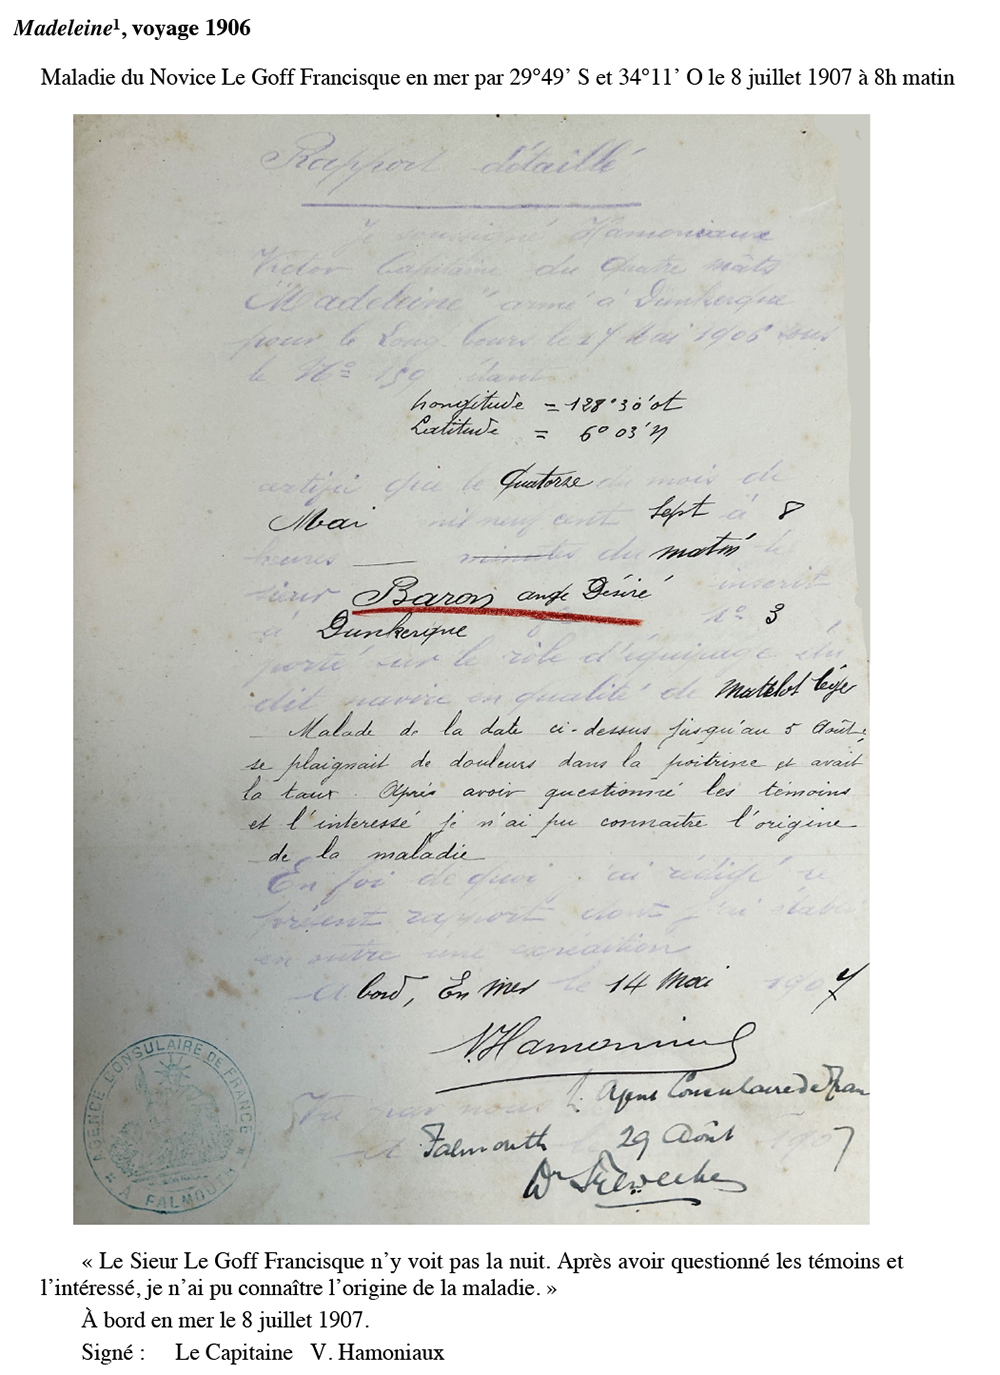 Madeleine¹, voyage 1906
Maladie du Novice Le Goff Francisque en mer par 29°49’ S et 34°11’ O le 8 juillet 1907 à 8h matin
Rapport détaillé
Je soussigné Hamoniaux
Victor Capitaine du Quatre mâts
"Madeleine" armé à Dunkerque
pour le Long Cours le 27 Mai 1906 sous
le Nº 159 étant
Longitude = 128°30'ot
Latitude = 6° 03'N
certifie que le Quatorze du mois de
Mai mil neuf cent Sept à 8
heures — minutes du matin le
sieur Baron ange Désiré inscrit
à Dunkerque nº 3
porté sur le rôle d'équipage du
dit navire en qualité de matelot léger
Malade de la date ci-dessus jusqu'au 5 Août,
se plaignait de douleurs dans la poitrine et avait
la taux. Après avoir questionné les témoins
et l'interessé je n'ai pu connaitre l'origine
de la maladie
En foi de quoi j'ai rédigé ce
présent rapport dont j'ai établi
en outre une expédition
A bord, En mer le 14 Mai 1907
V. Hamoniaux
Vu par nous L'Agent Consulaire de Fran
à Falmouth le 29 Août 1907
AGENCE CONSULAIRE DE FRANCE
A FALMOUTH
« Le Sieur Le Goff Francisque n’y voit pas la nuit. Après avoir questionné les témoins et
l’intéressé, je n’ai pu connaître l’origine de la maladie. »
À bord en mer le 8 juillet 1907.
Signé : Le Capitaine V. Hamoniaux